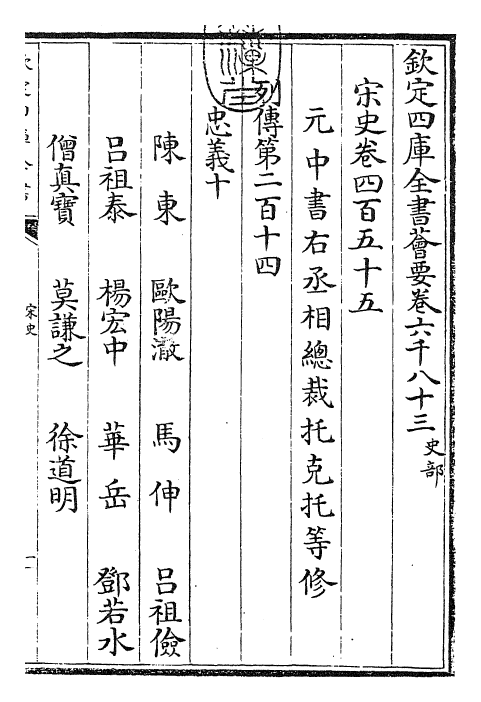 欽定四庫全書薈要卷六千八十三 史部
宋史卷四百五十五
元中書右丞相總裁托克托等修
列傳第二百十四
忠義十
陳東 歐陽澈 馬伸 呂祖儉
呂祖泰 楊宏中 華岳 鄧若水
僧真寶 莫謙之 徐道明
宋史